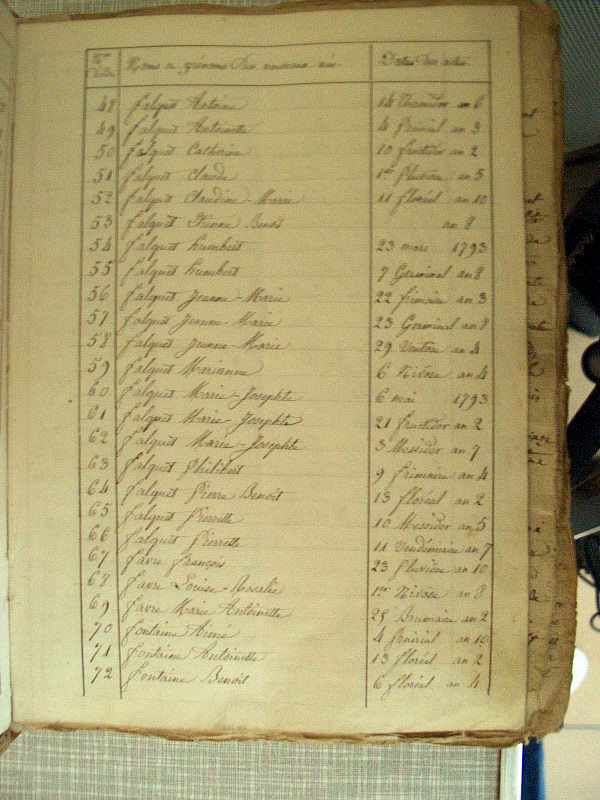 Noms et prénoms des nouveaux nés. Dates des actes.
48 falquet Antoine 14 Thermidor an 6
49 falquet Antoinette 4 prairial an 3
50 falquet Catherine 10 fructidor an 2
51 falquet Claude 1er pluviose an 5
52 falquet Claudine-Marie 11 floréal an 10
53 falquet Etienne Benoit an 8
54 falquet humbert 23 mars 1793
55 falquet humbert 7 Germinal an 8
56 falquet Jeanne-Marie 22 frimaire an 3
57 falquet Jeanne-Marie 23 Germinal an 8
58 falquet Jeanne-Marie 29 Ventose an 4
59 falquet Marianne 6 Nivose an 4
60 falquet Marie-Josephte 6 mai 1793
61 falquet Marie-Josephte 21 fructidor an 2
62 falquet Marie-Josephte 3 Messidor an 7
63 falquet philibert 9 frimaire an 4
64 falquet Pierre Benoit 13 floréal an 2
65 falquet Pierrette 10 Messidor an 5
66 falquet Pierrette 11 Vendémiaire an 7
67 favre françois 23 pluviose an 10
68 favre Louise-Rosalie 1er Nivose an 8
69 favre Marie Antoinette 25 Brumaire an 2
70 fontaine Aimé 4 prairial an 10
71 fontaine Antoinette 13 floréal an 2
72 fontaine Benoit 6 floréal an 4